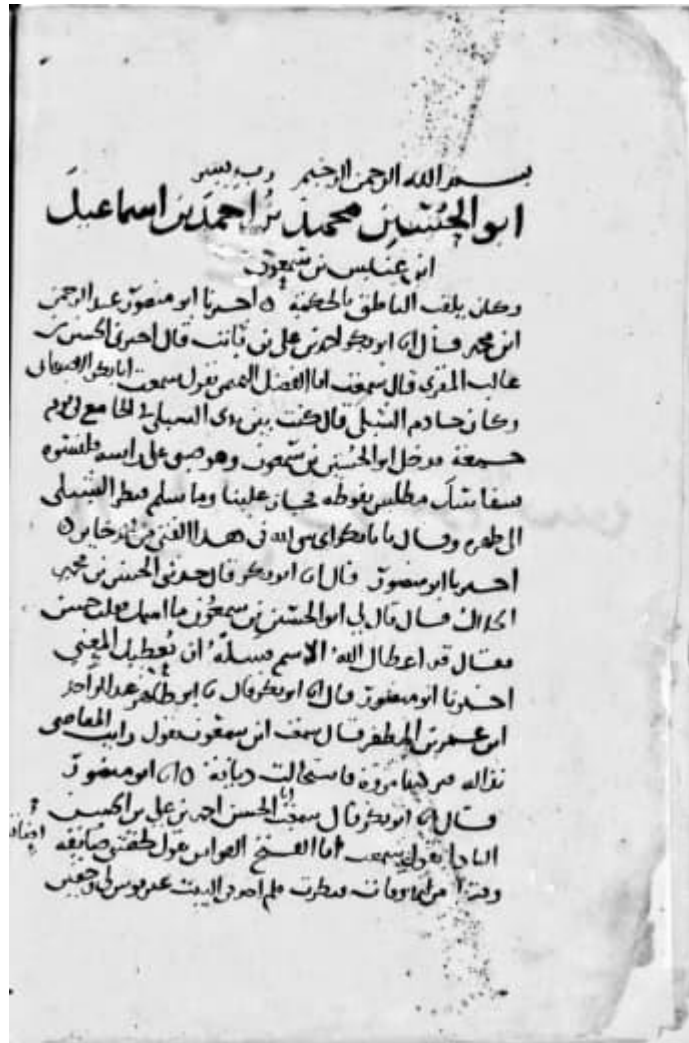 بسم الله الرحمن الرحيم رب يسر
ابو الحسين محمد بن احمد بن اسماعيل
ابن عنبس بن سمعون
وكان يلقب الناطق بالحكمة اخبرنا ابو منصور عبد الرحمن
ابن محمد قال انا ابو بكر احمد بن علي بن ثابت قال اخبرني الحسن بن
غالب المقرئ قال سمعت ابا الفضل التميمي يقول سمعت ابا بكر الاصبهاني
وكان خادم الشبلي قال كنت بين يدي الشبلي في الجامع يوم
جمعة فدخل ابو الحسين بن سمعون وهو صبي على راسه قلنسوة
بشفاشك مطلس بفوطة فجاز علينا وما سلم فنظر الشبلي
الى ظهره وقال يا ابا بكر اي شي لله في هذا الفتى من الذخاير
اخبرنا ابو منصور قال انا ابو بكر قال حدثني الحسن بن محمد
الخلال قال قال لي ابو الحسين بن سمعون ما اسمك فقلت حسن
فقال قد اعطاك الله الاسم فسله ان يعطيك المعني
اخبرنا ابو منصور قال انا ابو بكر قال نا ابو طاهر عبد الواحد
ابن عمر بن المظفر قال سمعت ابن سمعون يقول رايت المعاصي
نذالة فتركتها مروة فاستحالت ديانة انا ابو منصور
قال انا ابو بكر قال سمعت ابا الحسن احمد بن علي بن الحسن
البادا يقول سمعت ابا الفتح القواس يقول لحقتني ضايقة
وقتا من الاوقات فنظرت فلم اجد في البيت غير قوس لي وخفين